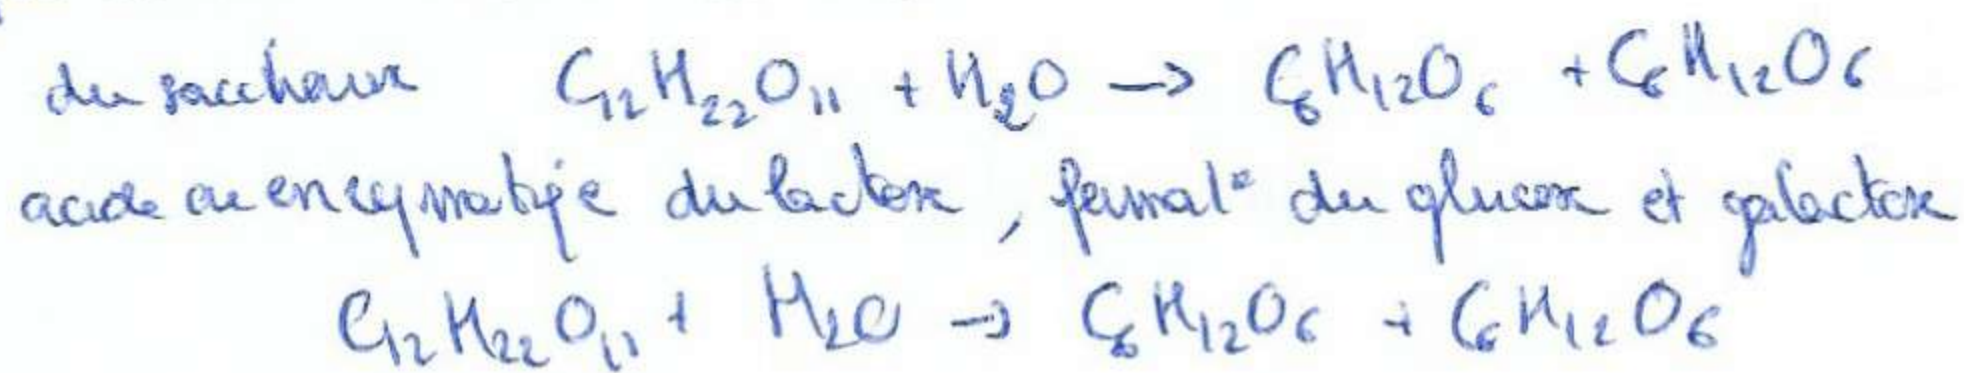 du saccharose C₁₂H₂₂O₁₁ + H₂O → C₆H₁₂O₆ + C₆H₁₂O₆
acide ou enzymatique du lactose, format° du glucose et galactose
C₁₂H₂₂O₁₁ + H₂O → C₆H₁₂O₆ + C₆H₁₂O₆